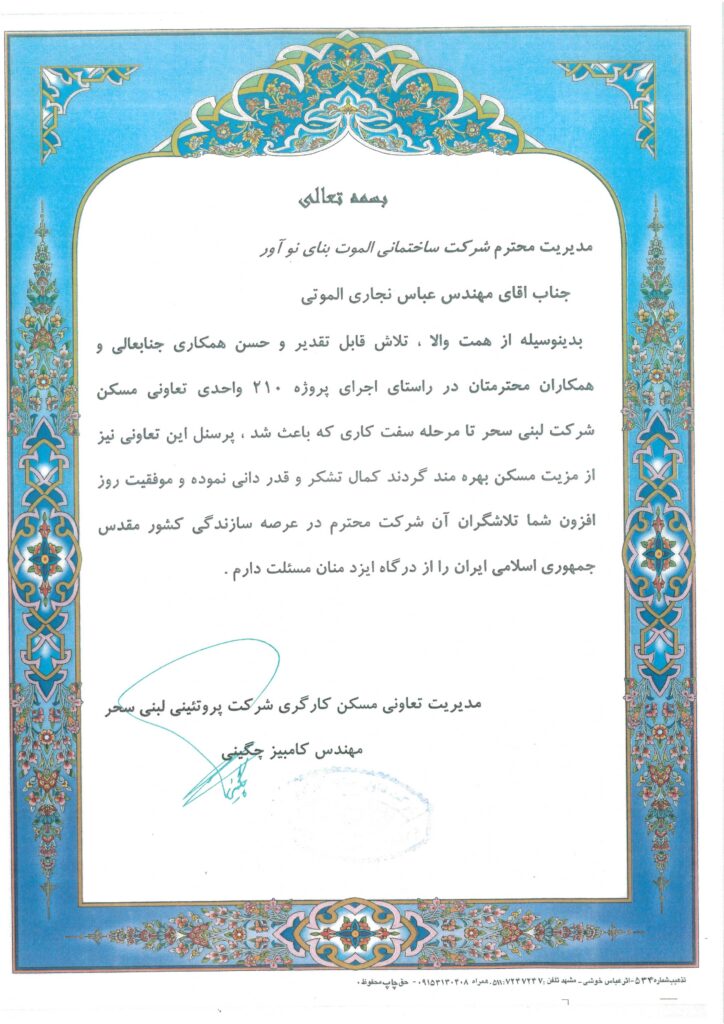 بسمه تعالی
مدیریت محترم شرکت ساختمانی الموت بنای نو آور
جناب اقای مهندس عباس نجاری الموتی
بدینوسیله از همت والا ، تلاش قابل تقدیر و حسن همکاری جنابعالی و
همکاران محترمتان در راستای اجرای پروژه ۲۱۰ واحدی تعاونی مسکن
شرکت لبنی سحر تا مرحله سفت کاری که باعث شد ، پرسنل این تعاونی نیز
از مزیت مسکن بهره مند گردند کمال تشکر و قدر دانی نموده و موفقیت روز
افزون شما تلاشگران آن شرکت محترم در عرصه سازندگی کشور مقدس
جمهوری اسلامی ایران را از درگاه ایزد منان مسئلت دارم .
مدیریت تعاونی مسکن کارگری شرکت پروتئینی لبنی سحر
مهندس کامبیز چگینی
تذهیب شماره ۵۳۴ - اثر عباس خوشی - مشهد تلفن : ۷۲۴۷۲۴۷ : ۵۱۱. همراه ۰۹۱۵۳۱۳۰۲۰۸ - حق چاپ محفوظ ۰